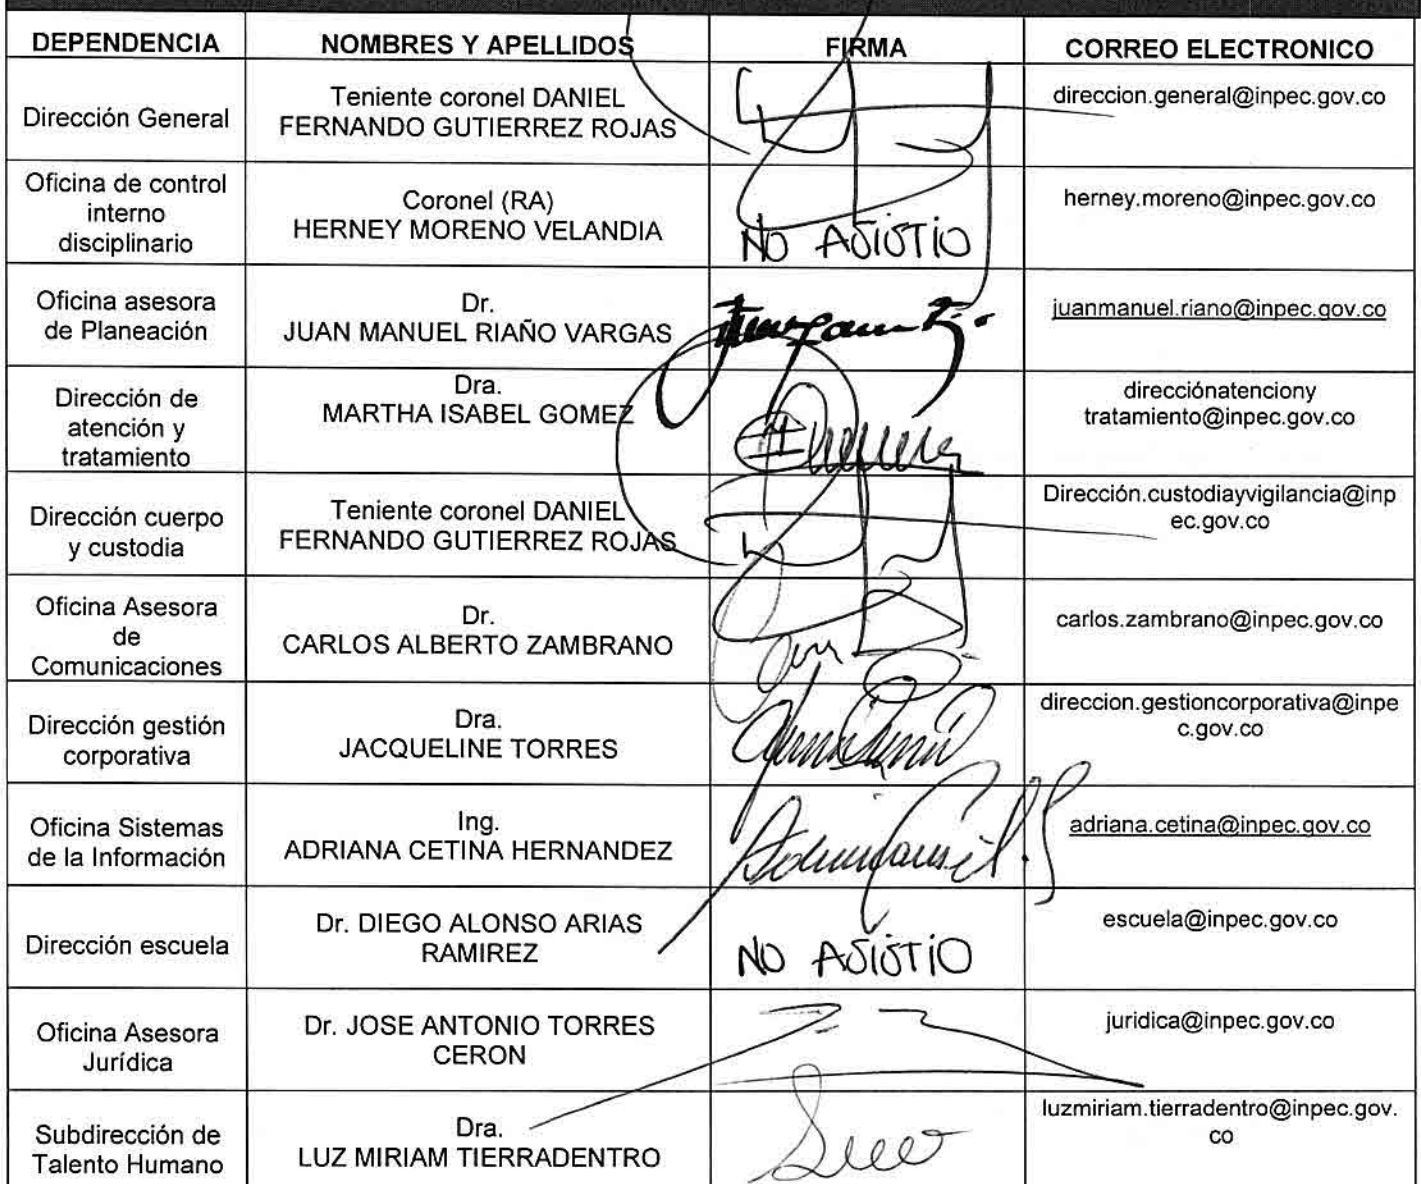 DEPENDENCIA NOMBRES Y APELLIDOS FIRMA CORREO ELECTRONICO
Dirección General
Teniente coronel DANIEL
FERNANDO GUTIERREZ ROJAS
direccion.general@inpec.gov.co
Oficina de control
interno
disciplinario
Coronel (RA)
HERNEY MORENO VELANDIA
NO ASISTIO
herney.moreno@inpec.gov.co
Oficina asesora
de Planeación
Dr.
JUAN MANUEL RIAÑO VARGAS
juanmanuel.riano@inpec.gov.co
Dirección de
atención y
tratamiento
Dra.
MARTHA ISABEL GOMEZ
direcciónatenciony
tratamiento@inpec.gov.co
Dirección cuerpo
y custodia
Teniente coronel DANIEL
FERNANDO GUTIERREZ ROJAS
Dirección.custodiayvigilancia@inp
ec.gov.co
Oficina Asesora
de
Comunicaciones
Dr.
CARLOS ALBERTO ZAMBRANO
carlos.zambrano@inpec.gov.co
Dirección gestión
corporativa
Dra.
JACQUELINE TORRES
direccion.gestioncorporativa@inpe
c.gov.co
Oficina Sistemas
de la Información
Ing.
ADRIANA CETINA HERNANDEZ
adriana.cetina@inpec.gov.co
Dirección escuela
Dr. DIEGO ALONSO ARIAS
RAMIREZ
NO ASISTIO
escuela@inpec.gov.co
Oficina Asesora
Jurídica
Dr. JOSE ANTONIO TORRES
CERON
juridica@inpec.gov.co
Subdirección de
Talento Humano
Dra.
LUZ MIRIAM TIERRADENTRO
luzmiriam.tierradentro@inpec.gov.
co